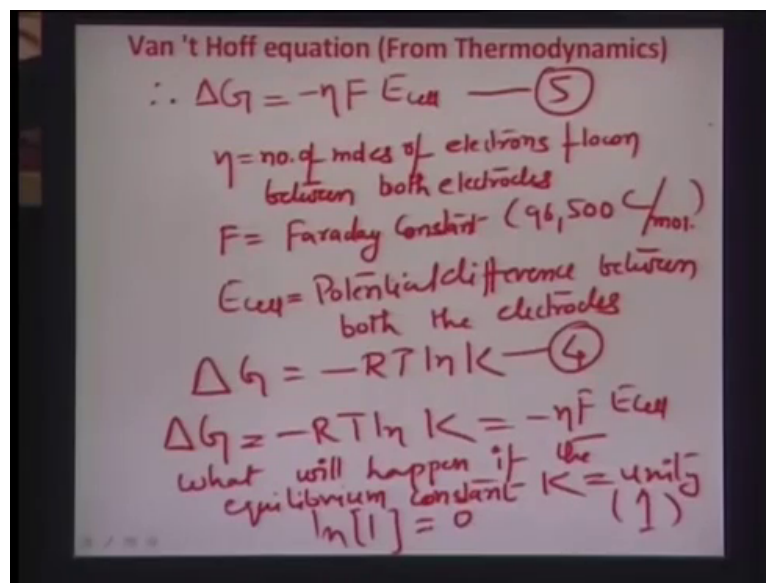 Van 't Hoff equation (From Thermodynamics)
∴ ΔG = -ηF Ecell — ⑤
η = no. of moles of electrons flown
between both electrodes
F = Faraday Constant (96,500 C/mol.)
Ecell = Potential difference between
both the electrodes
ΔG = -RT ln K — ④
ΔG = -RT ln K = -ηF Ecell
what will happen if the
equilibrium constant K = unity
ln[1] = 0 (1)